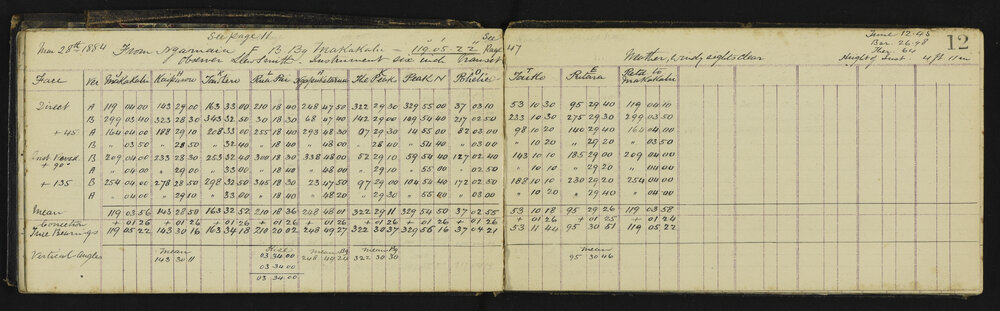 See page 11
See Page 47
Mar 28th 1884 From Ngarnaia F. B. Brg Makakahi - 119.05.22
Observer Llew Smith. Instrument six inch Transit
Weather, windy sights clear
Time 12.45
Bar. 26.98
Ther 64
Height of Inst 4 ft 11 in
12
Face Ver Makakahi 143 The Peak Peak N Rets to Makakahi
Direct A 119 04 00 143 29 00 163 33 00 210 18 40 248 47 50 322 29 30 329 55 00 37 03 10 53 10 30 95 29 40 119 04 10
B 299 03 40 323 28 30 343 32 50 30 18 30 68 47 40 142 29 00 149 54 40 217 02 50 233 10 30 275 29 30 299 03 50
+ 45 A 164 04 00 188 29 10 208 33 00 255 18 40 293 48 30 07 29 30 14 55 00 82 03 00 98 10 20 140 29 40 164 04 00
B " 03 50 " 28 50 " 32 40 " 18 40 " 48 00 " 28 40 " 54 40 " 03 00 " 10 20 " 29 20 " 03 50
Inst Revsd + 90 B 209 04 00 233 28 30 253 32 40 300 18 30 338 48 00 52 29 10 59 54 40 127 02 40 143 10 10 185 29 00 209 04 00
A " 04 00 " 29 00 " 33 00 " 18 40 " 48 00 " 29 10 " 55 00 " 02 50 " 10 10 " 29 20 " 04 00
+ 135 B 254 04 00 278 28 50 298 32 50 345 18 30 23 47 50 97 29 00 104 54 40 172 02 50 188 10 10 230 29 20 254 04 00
A " 04 00 " 29 10 " 33 00 " 18 40 " 48 20 " 29 30 " 55 00 " 03 00 " 10 20 " 29 40 " 04 00
Mean 119 03 56 143 28 50 163 32 52 210 18 36 248 48 01 322 29 11 329 54 50 37 02 55 53 10 18 95 29 26 119 03 58
Correction + 01 26 + 01 26 + 01 26 + 01 26 + 01 26 + 01 26 + 01 26 + 01 26 + 01 26 + 01 25 + 01 24
True Bearings 119 05 22 143 30 16 163 34 18 210 20 02 248 49 27 322 30 37 329 56 16 37 04 21 53 11 44 95 30 51 119 05 22
Vertical Angles mean 143 30 11 Rise 03.34.00 mean Brg 248 49 24 mean Brg 322 30 30 mean 95 30 46
03.34.00
03 34 00